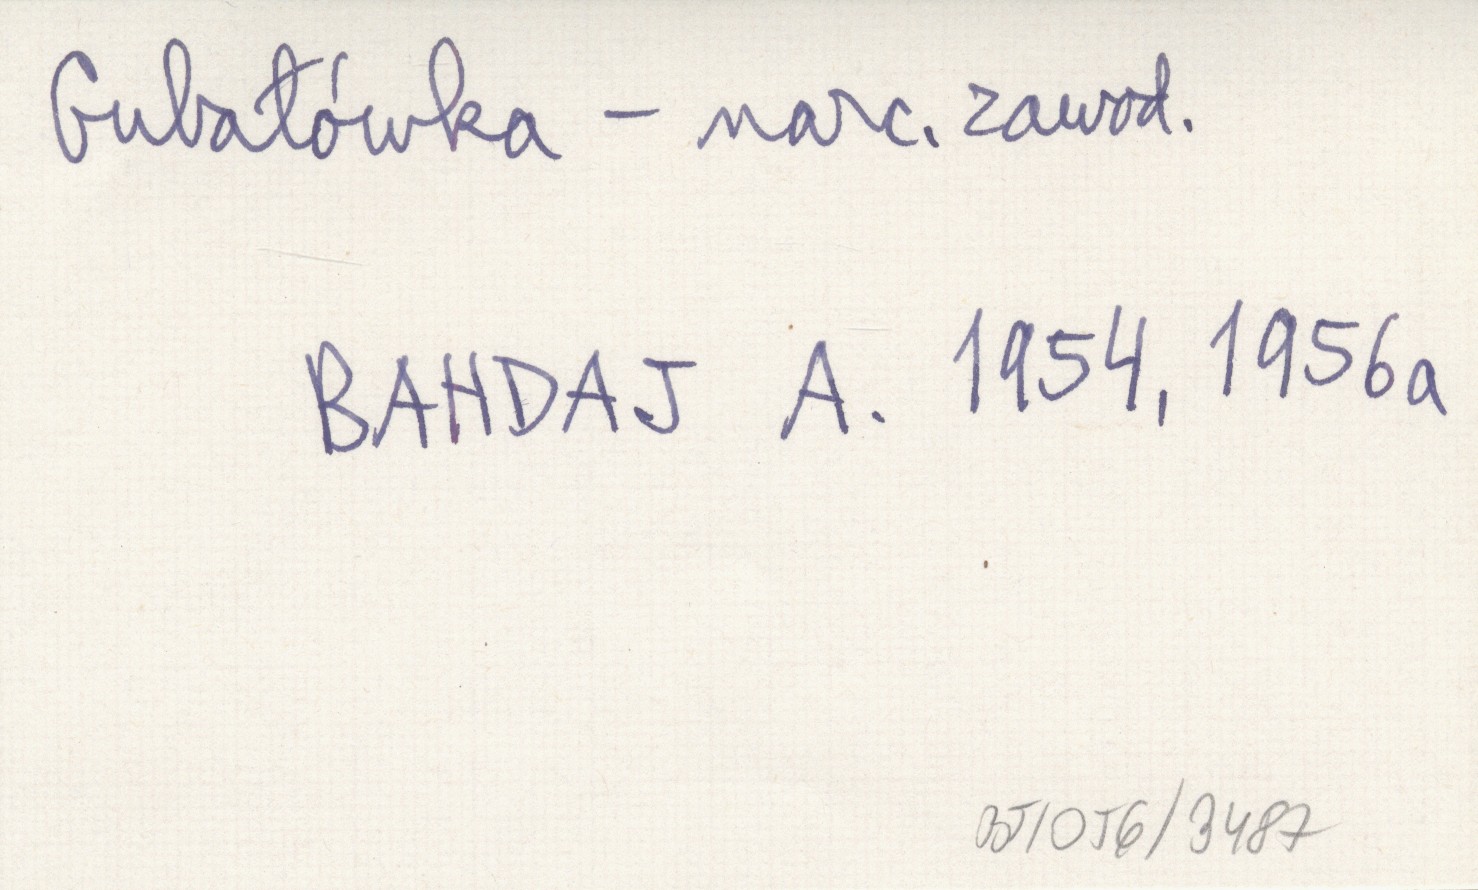 Gubałówka – narc. zawod.
BAHDAJ A. 1954, 1956a
BJ/OJG/3487